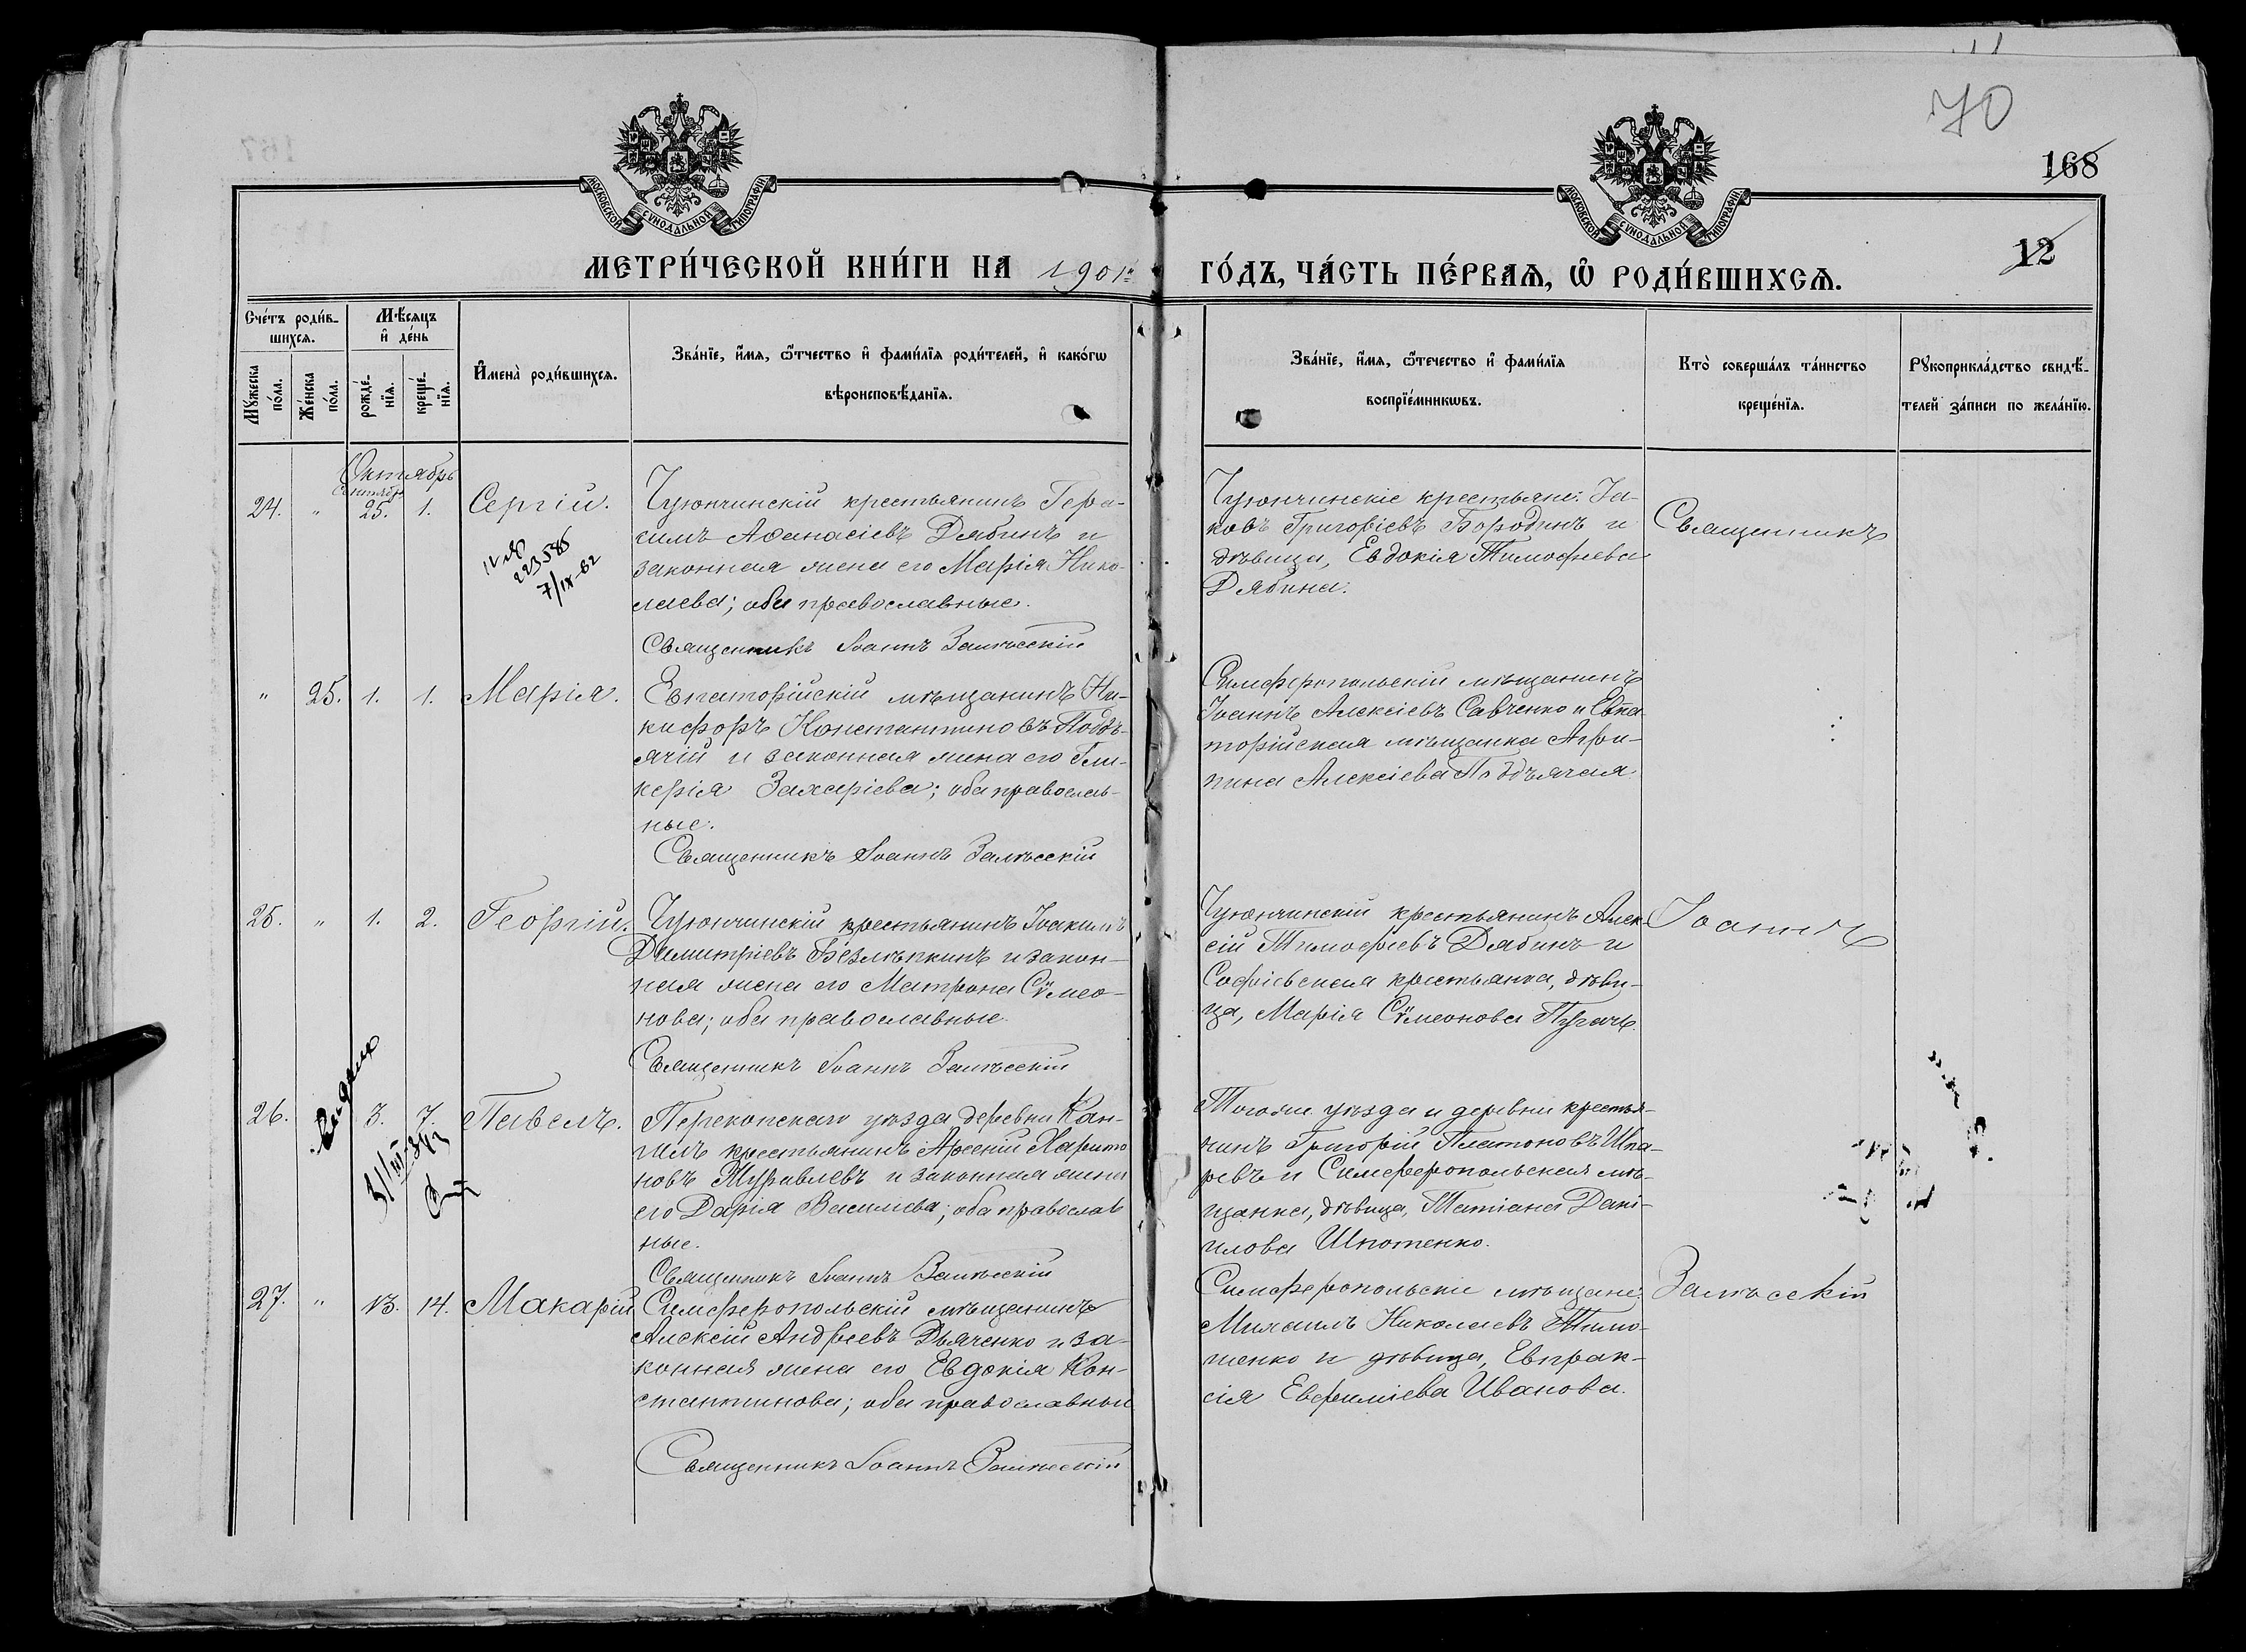 70
168
12
МОСКОВСКОЙ СѴНОДАЛЬНОЙ ТИПОГРАФІИ
МОСКОВСКОЙ СѴНОДАЛЬНОЙ ТИПОГРАФІИ
МЕТРИ́ЧЕСКОЙ КНИ́ГИ НА 1901й
ГО́ДЪ, ЧА́СТЬ ПЕ́РВАѦ, Ѡ҆ РОДИ́ВШИХСѦ.
Сче́тъ роди́в-
шихсѧ.
Мѣ́сѧцъ
и҆ де́нь
Мꙋ́жеска
по́ла.
Же́нска
по́ла.
рожде́-
нїѧ.
креще́-
нїѧ.
И҆мена̀ роди́вшихсѧ.
Зва́нїе, и҆́мѧ, ѻ҆́тчество и҆ фами́лїѧ роди́телей, и҆ како́гѡ
вѣроисповѣ́данїѧ.
Зва́нїе, и҆́мѧ, ѻ҆́течество и҆ фами́лїѧ
воспрїе́мникѡвъ.
Кто̀ соверша́лъ та́инство
креще́нїѧ.
Рꙋкоприкла́дство свидѣ́-
телей за́писи по жела́нїю.
Октябрь
Сентябр
24. " 25. 1. Сергій.
223585
7/IX-62
Чуюнчинскій крестьянинъ Гера-
симъ Аѳанасіевъ Дябинъ и
законная жена его Марія Нико-
лаева; оба православные.
Священникъ Іоаннъ Залѣсскій
Чуюнчинскіе крестьяне: Іа-
ковъ Григоріевъ Бородинъ и
дѣвица, Евдокія Тимоѳеева
Дябина.
Священникъ
" 25. 1. 1. Марія.
Евпаторійскій мѣщанинъ Ни-
кифоръ Константиновъ Поддъ-
ячій и законная жена его Гли-
керія Захаріева; оба православ-
ные.
Священникъ Іоаннъ Залѣсскій
Симферопольскій мѣщанинъ
Іоаннъ Алексіевъ Савченко и Евпа
торійская мѣщанка Агри-
пина Алексіева Поддъячая
25. " 1. 2. Георгій.
Чуюнчинскій крестьянинъ Іоакимъ
Димитріевъ Безлѣпкинъ и закон-
ная жена его Матрона Сѵмео-
нова; оба православные.
Священникъ Іоаннъ Залѣсскій
Чуюнчинскій крестьянинъ Алек
сій Тимоѳеевъ Дябинъ и
Софіевская крестьянка, дѣви-
ца, Марія Сѵмеонова Пугачъ
Іоаннъ
26. 3. 7. Павелъ.
Перекопскаго уѣзда деревни Кан-
гилъ крестьянинъ Арсеній Харито
новъ Журавлевъ и законная жена
его Дарія Василіева; оба православ
ные.
Священникъ Іоаннъ Залѣсскій
Тогоже уѣзда и деревни крестья-
нинъ Григорій Платоновъ Шпа-
ревъ и Симферопольская мѣ-
щанка, дѣвица, Татіана Дані-
илова Шпотенко.
27. " 13. 14. Макарій
Симферопольскій мѣщанинъ
Алексій Андреевъ Дьяченко и за-
конная жена его Евдокія Кон-
стантинова; оба православные
Священникъ Іоаннъ Залѣсскій
Симферопольскіе мѣщане:
Михаилъ Николаевъ Тимо-
шенко и дѣвица, Евпрак-
сія Евфиміева Иванова.
Залѣсскій